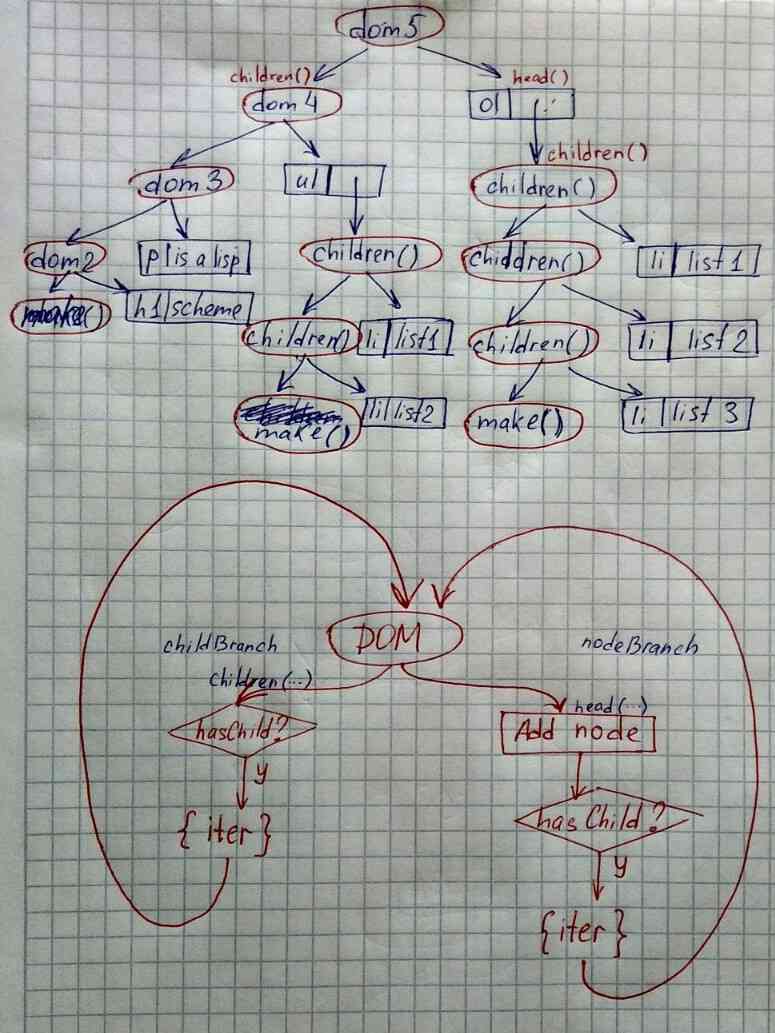 dom5
children() head()
dom4 ol
children()
dom3 ul children()
dom2 p is a lisp children() chiddren() li list 1
make() h1 scheme children() li list1 children() li list 2
make() li list2 make() li list 3
DOM
childBranch nodeBranch
children(...) head(...)
hasChild? Add node
y
{iter} has Child?
y
{iter}